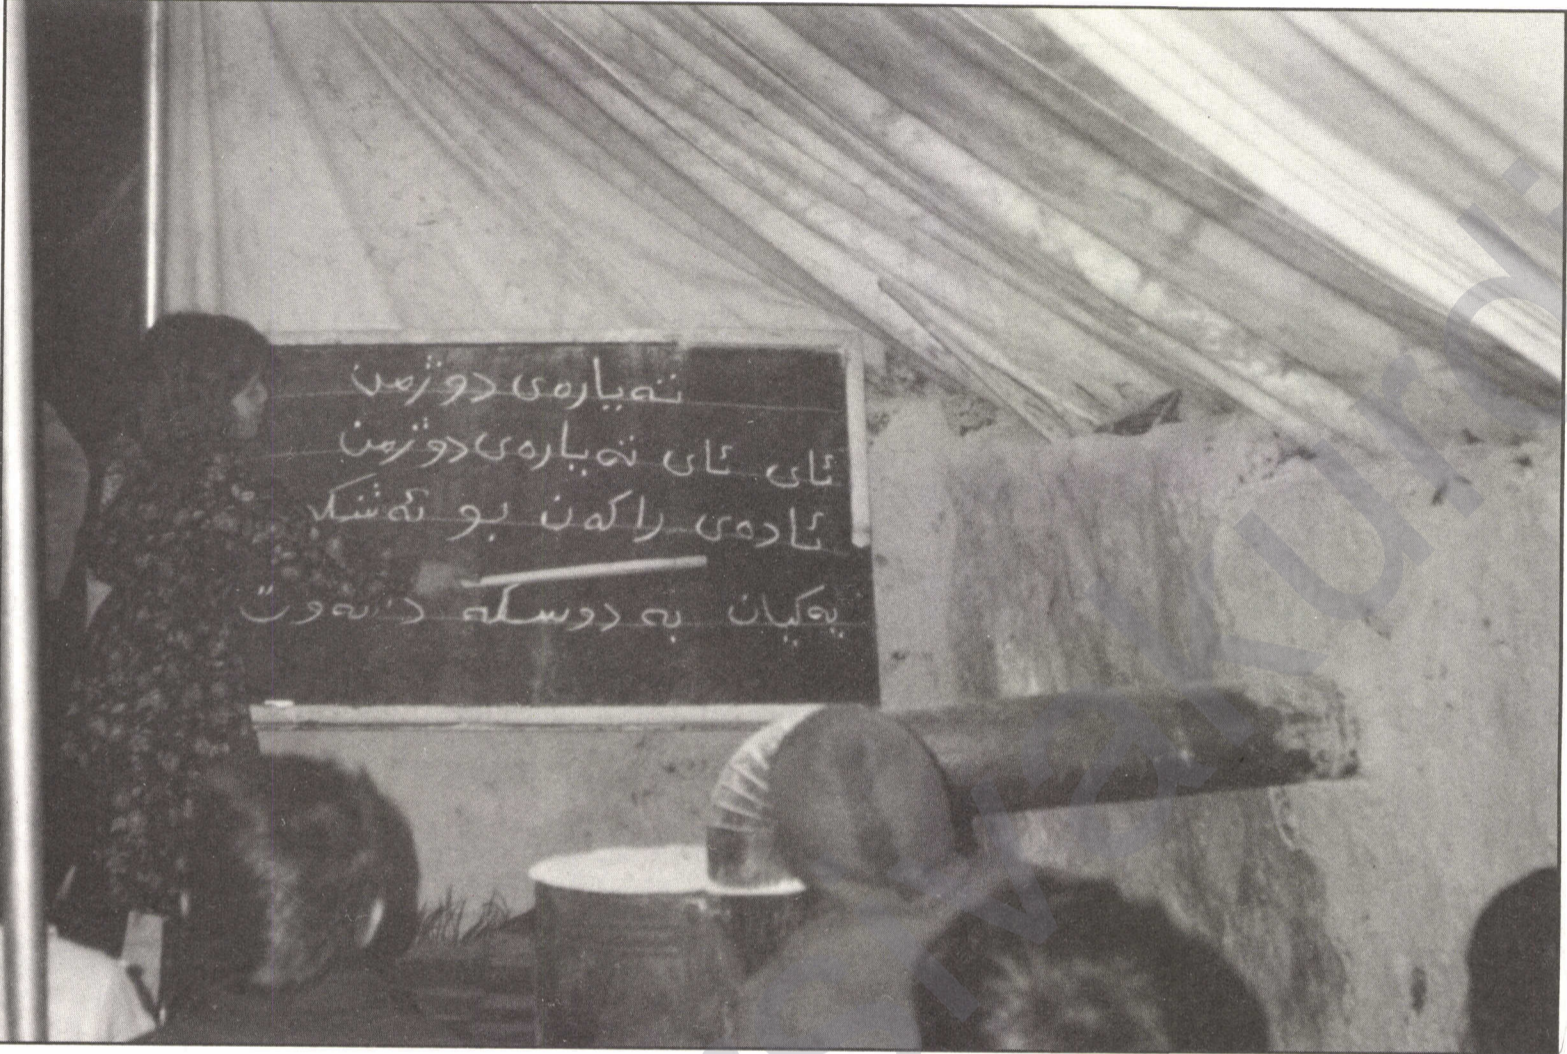 تەیارەی دوژمن
ئای ئای تەیارەی دوژمن
ئادەی راکەن بو ئەشکە
یەکیان بە دوسکە دبەوت